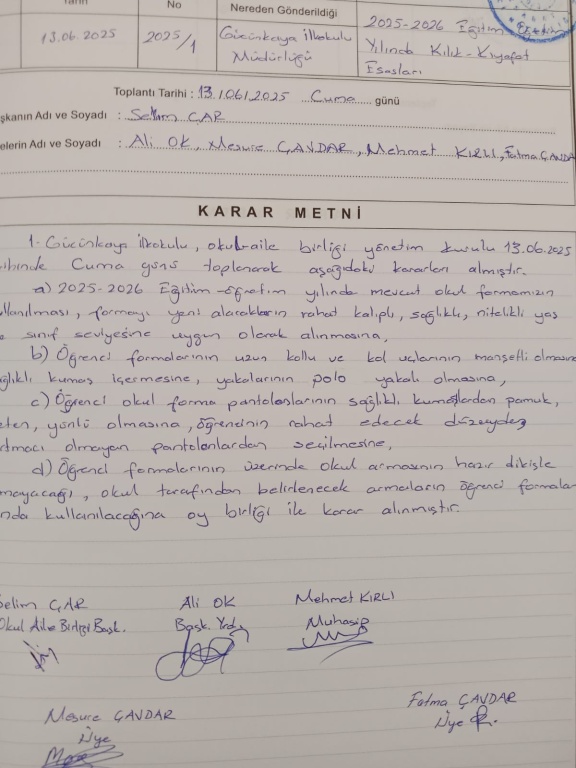 Tarih No Nereden Gönderildiği
13.06.2025 2025/1 Gücünkaya İlkokulu Müdürlüğü 2025-2026 Eğitim Öğretim
Yılında Kılık-Kıyafet
Esasları
Toplantı Tarihi : 13.1.061.2025 Cuma günü
şkanın Adı ve Soyadı : Selim ÇAR
elerin Adı ve Soyadı : Ali OK, Mesure ÇAVDAR, Mehmet KIRLI, Fatma ÇAVDA
KARAR METNİ
1- Gücünkaya İlkokulu, okul-aile birliği yönetim kurulu 13.06.2025
ihinde Cuma günü toplanarak aşağıdaki kararları almıştır.
a) 2025-2026 Eğitim-öğretim yılında mevcut okul formamızın
llanılması, formayı yeni alacakların rahat kalıplı, sağlıklı, nitelikli yaş
sınıf seviyesine uygun olarak alınmasına,
b) Öğrenci formalarının uzun kollu ve kol uçlarının manşetli olmasına
ğlıklı kumaş içermesine, yakalarının polo yakalı olmasına,
c) Öğrenci okul forma pantolonlarının sağlıklı kumaşlardan pamuk,
eten, yünlü olmasına, öğrencinin rahat edecek düzeyde,
rtmacı olmayan pantolonlardan seçilmesine,
d) Öğrenci formalarının üzerinde okul armasının hazır dikişle
mayacağı, okul tarafından belirlenecek armaların öğrenci formaları
nda kullanılacağına oy birliği ile karar alınmıştır.
Selim ÇAR Ali OK Mehmet KIRLI
Okul Aile Birliği Başk. Başk. Yrd. Muhasip
Mesure ÇAVDAR Fatma ÇAVDAR
Üye Üye